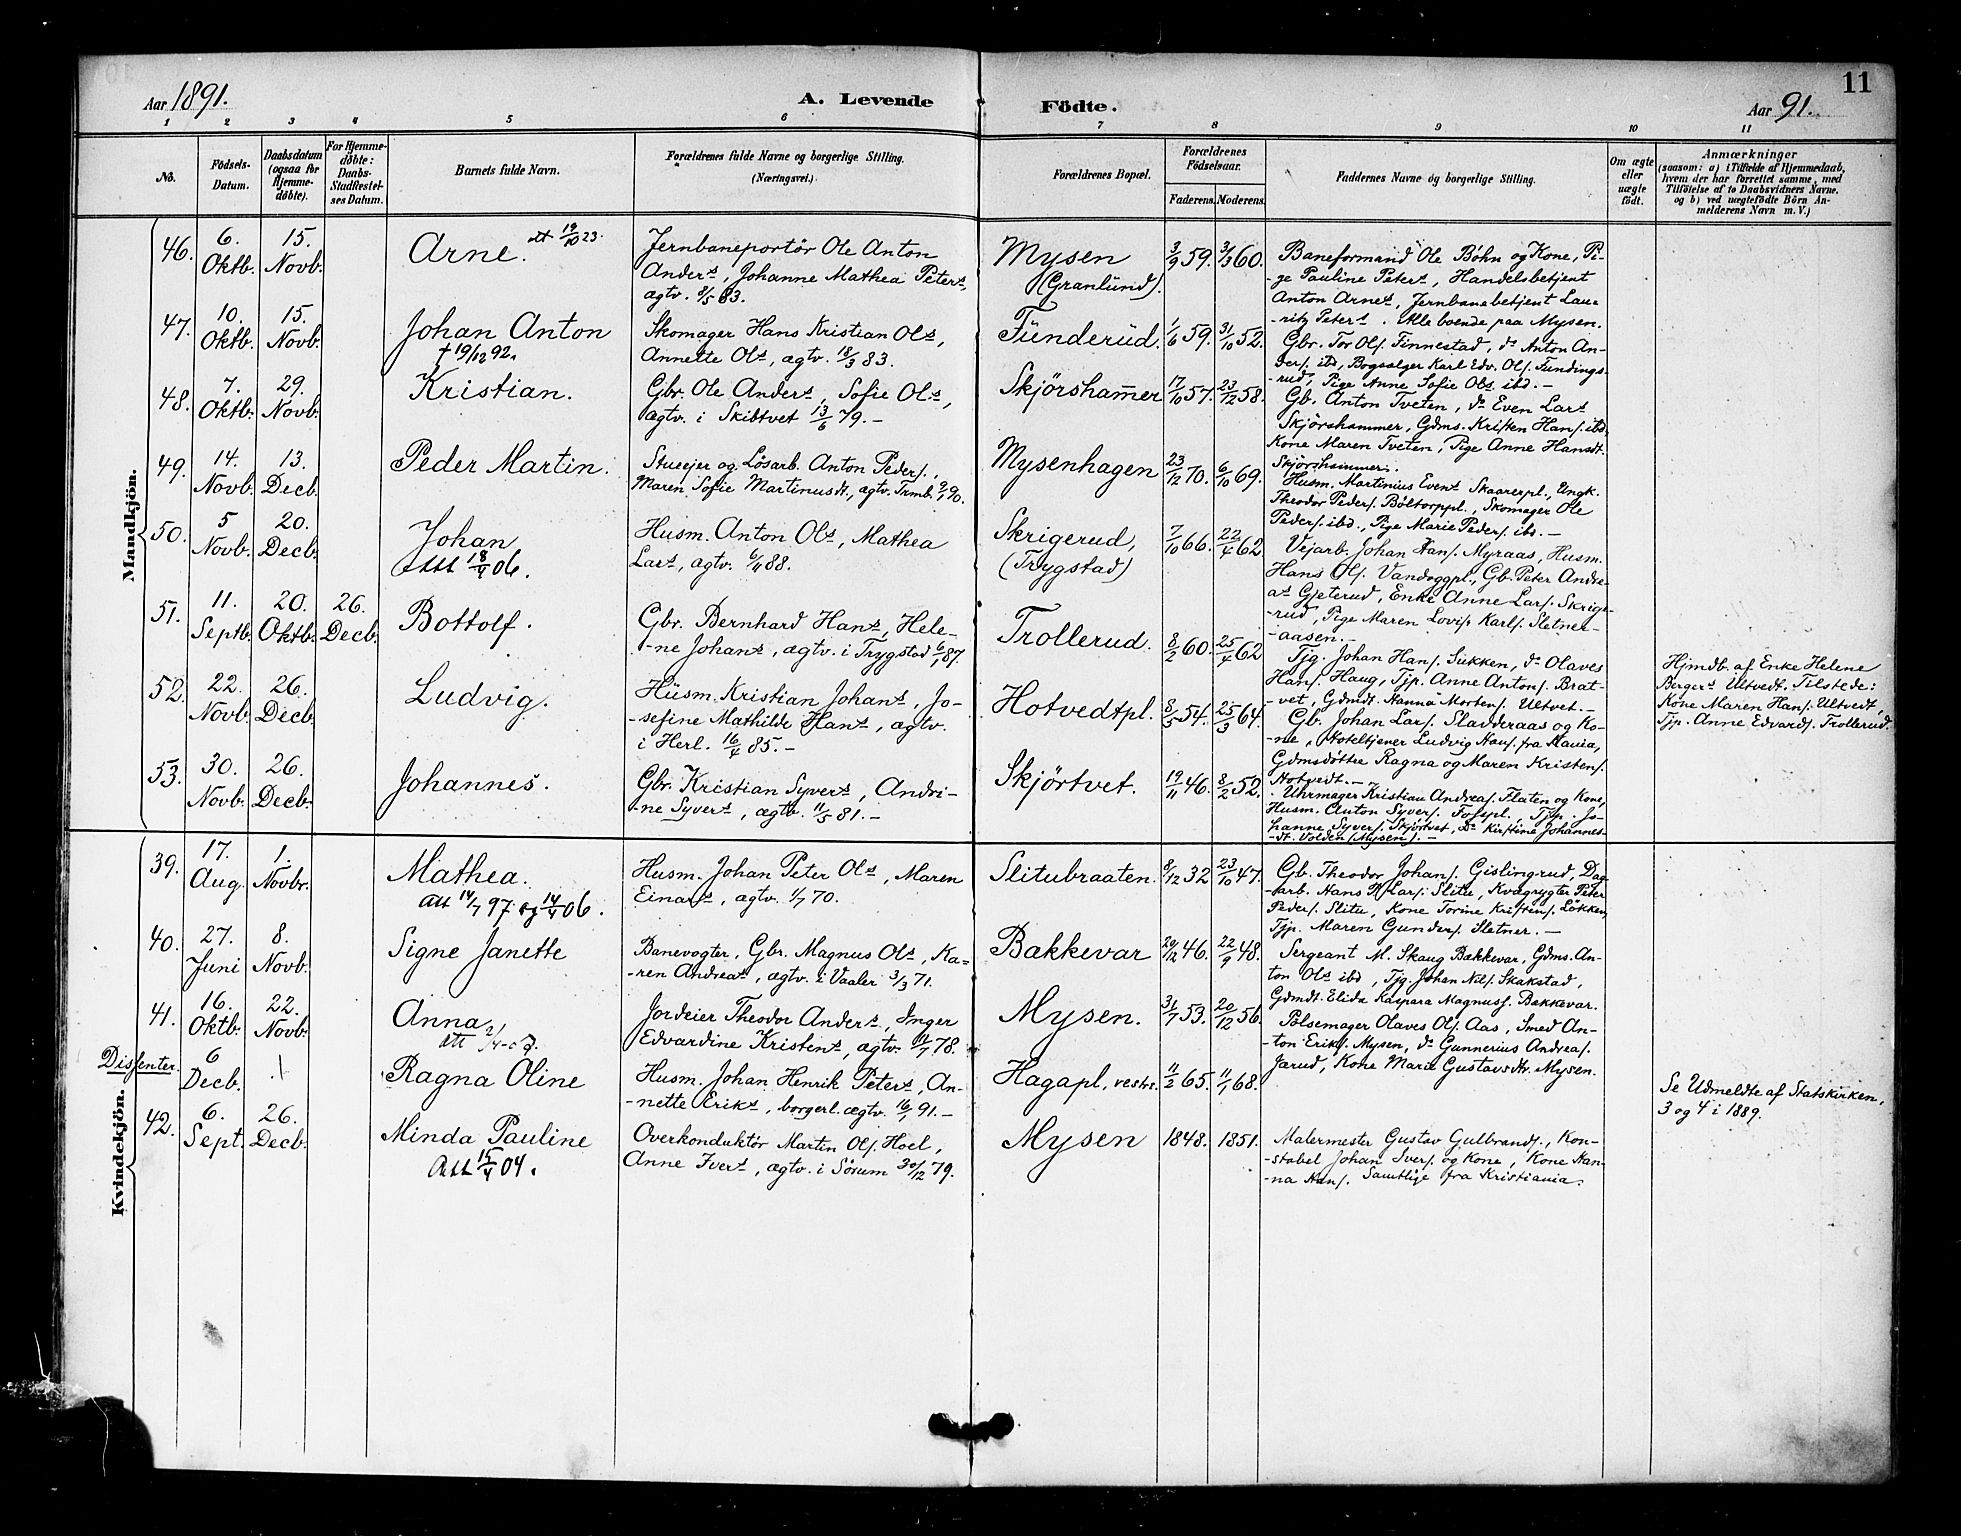 11
Aar 1891.
A. Levende Födte.
Aar 91.
1 2 3 4 5 6 7 8 9 10 11
No.
Födsels-
Datum.
Daabsdatum
(ogsaa for
Hjemme-
døbte).
For Hjemme-
døbte:
Daabs-
Stadfæstel-
ses Datum.
Barnets fulde Navn.
Forældrenes fulde Navne og borgerlige Stilling.
(Næringsvei.)
Forældrenes Bopæl.
Forældrenes
Födselsaar.
Faderens. Moderens.
Faddernes Navne og borgerlige Stilling.
Om ægte
eller
uægte
født.
Anmærkninger
(saasom: a) i Tilfælde af Hjemmedaab,
hvem der har forrettet samme, med
Tilföielse af to Daabsvidners Navne.
og b) ved uægtefödte Börn An-
melderens Navn m. V.)
Mandkjön.
46.
6.
Oktb.
15.
Novb.
Arne. att 19/10 23.
Jernbaneportör Ole Anton
Anders, Johanne Mathea Peters,
ægtv. 8/5 83.
Mysen
(Granlund).
3/9 59. 31/3 60.
Baneformand Ole Böhn og Kone, Pi-
-ge Pauline Peters, Handelsbetjent
Anton Arnes, Jernbanebetjent Lau-
-ritz Peters. Alle boende paa Mysen.
47.
10.
Oktb.
15.
Novb.
Johan Anton
† 19/12 92.
Skomager Hans Kristian Ols,
Annette Ols, ægtv. 18/3 83.
Tunderud.
1/6 59. 31/10 52.
Gbr. Tor Ols. Finnestad, do Anton An-
ders. ibd, Bogsælger Karl Edv. Ols. Fundings-
-rud, Pige Anne Sofie Ols. ibd. –
48.
7.
Oktb.
29.
Novb.
Kristian.
Gbr. Ole Anders, Sofie Ols,
ægtv. i Skibtvet 13/6 79. –
Skjörshammer
17/10 57. 23/12 58.
Gb. Anton Tveten, do Even Lars
Skjörshammer, Gdms. Kristen Hans. ibd,
Kone Maren Tveten, Pige Anne Hansdt.
Skjörshammer.
49.
14.
Novb.
13.
Decb.
Peder Martin.
Stueejer og Lösarb. Anton Peders.,
Maren Sofie Martinusdt., ægtv. Trmb. 2/1 90.
Mysenhagen
23/12 70. 6/10 69.
Husm. Martinius Evens Skaarerpl., Ungk.
Theodor Peders. Böltorppl., Skomager Ole
Peders. ibd., Pige Marie Peders. ibd. –
50.
5
Novb.
20.
Decb.
Johan
Att 18/4 06.
Husm. Anton Ols, Mathea
Lars, ægtv. 6/11 88.
Skrigerud,
(Trygstad)
7/10 66. 22/4 62
Vejarb. Johan Hans. Myraas, Husm.
Hans Ols. Vanduggpl., Gb. Peter Andre-
as Gjeterud, Enke Anne Lars. Skrige-
-rud, Pige Maren Lovise Karls. Sletner-
-aasen. –
51.
11.
Septb.
20.
Oktb.
26.
Decb.
Bottolf.
Gbr. Bernhard Hans, Hele-
-ne Johans, ægtv. i Trygstad 6/1 87.
Trollerud.
8/2 60. 25/4 62
Tjg. Johan Hans. Sukken, do Olaves
Hans. Haug, Tjp. Anne Antons. Brat-
-vet, Gdmdt. Hanna Mortens. Ultvet. –
Hjmdb. af Enke Helene
Bergers Ultvedt. Tilstede:
Kone Maren Hans. Ultvedt,
Tjp. Anne Edvards. Trollerud.
52.
22.
Novb.
26.
Decb.
Ludvig.
Husm. Kristian Johans, Jo-
-sefine Mathilde Hans, ægtv.
i Herl. 16/4 85. –
Hotvedtpl.
8/5 54. 25/3 64.
Gb. Johan Lars. Sladderaas og Ko-
-ne, Hoteltjener Ludvig Hans. fra Xania,
Gdmsdöttre Ragna og Maren Kristens.
Hotvedt. –
53.
30.
Novb.
26.
Decb.
Johannes.
Gbr. Kristian Syvers, Andri-
-ne Syvers, ægtv. 11/5 81. –
Skjörtvet.
19/11 46. 8/2 52.
Uhrmager Kristian Andreas. Flaten og Kone,
Husm. Anton Syvers. Fosspl., Tjp. Jo-
hanne Syvers. Skjörtvet, do Kirstine Johannes-
dt. Volden (Mysen). –
Kvindekjön.
39.
17.
Aug.
1.
Novbr.
Mathea.
Att 14/7 97 og 14/4 06.
Husm. Johan Peter Ols, Maren
Einars, ægtv. 1/7 70.
Slitubraaten.
8/12 32 23/10 47.
Gb. Theodor Johans. Gislingrud, Dag-
-arb. Hans P. Lars. Slitu, Kvægrygter Peter
Peders. Slitu, Kone Torine Kristens. Lökken,
Tjp. Maren Gunders. Sletner. –
40.
27.
Juni
8.
Novb.
Signe Janette
Banevogter, Gbr. Magnus Ols, Ka-
-ren Andreas, ægtv. i Vaaler 3/3 71.
Bækkevar
20/12 46. 22/9 48.
Sergeant M. Skaug Bækkevar, Gdms. An-
ton Ols ibd, Tjg. Johan Nils. Skakstad,
Gdmdt. Elida Kaspara Magnuss. Bækkevar.
41.
16.
Oktb.
22.
Novb.
Anna
att 2/4-07.
Jordeier Theodor Anders, Inger
Edvardine Kristens, ægtv. 11/7 78.
Mysen.
31/7 53. 20/12 56.
Pölsemager Olaves Ols. Aas, Smed An-
ton Eriks. Mysen, do Gunnerius Andreas.
Jarud, Kone Marie Gustavsdt. Mysen.
Dissenter.
6
Decb.
Ragna Oline
Husm. Johan Henrik Peters, An-
-nette Eriks, borgerl. ægtv. 16/1 91. –
Hagapl., vestre.
11/2 65. 11/1 68.
Se Udmeldte af Statskirken,
3 og 4 i 1889.
42.
6.
Sept.
26.
Decb.
Minda Pauline
Att 15/4 04.
Overkonduktör Martin Ols. Hoel,
Anne Ivers, ægtv. i Sörum 30/12 79.
Mysen
1848. 1851.
Malermester Gustav Gulbrands., Kon-
-stabel Johan Ivers. og Kone, Kone Han-
-na Hans. Samtlige fra Kristiania.